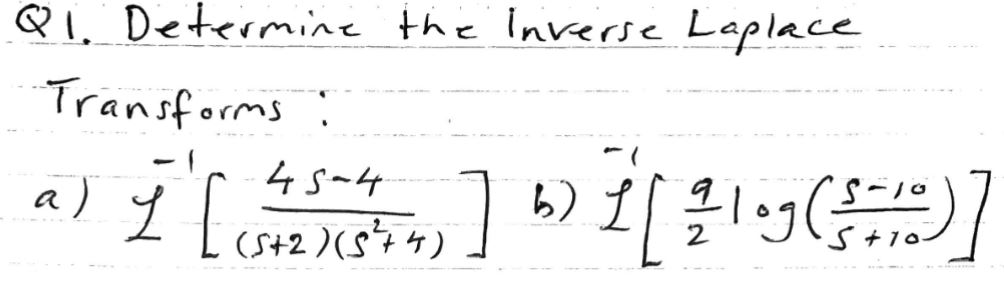 Q1. Determine the Inverse Laplace
Transforms :
a) ℒ⁻¹[(4s-4)/((s+2)(s²+4))] b) ℒ⁻¹[9/2 log((s-10)/(s+10))]